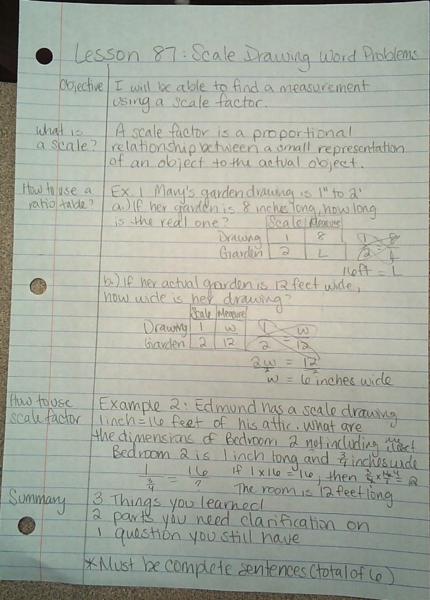 Lesson 87: Scale Drawing Word Problems
Objective I will be able to find a measurement
using a scale factor.
What is A scale factor is a proportional
a scale? relationship between a small representation
of an object to the actual object.
How to use a Ex. 1 Mary's garden drawing is 1" to 2'
ratio table? a.) If her garden is 8 inches long, how long
is the real one? Scale Measure
Drawing 1 8 1 8
Garden 2 L 2 L
16ft = L
b.) If her actual garden is 12 feet wide,
how wide is her drawing?
Scale Measure
Drawing 1 w 1 = w
Garden 2 12 2 = 12
2w = 12
2 2
w = 6 inches wide
How to use Example 2: Edmund has a scale drawing
scale factor 1 inch = 16 feet of his attic. What are
the dimensions of Bedroom 2 not including the closet
Bedroom 2 is 1 inch long and 3/4 inches wide
1 = 16 If 1 x 16 = 16, then 3/4 x = 12
3/4 ? The room is 12 feet long
Summary 3 Things you learned
2 parts you need clarification on
1 question you still have
*Must be complete sentences (total of 6)